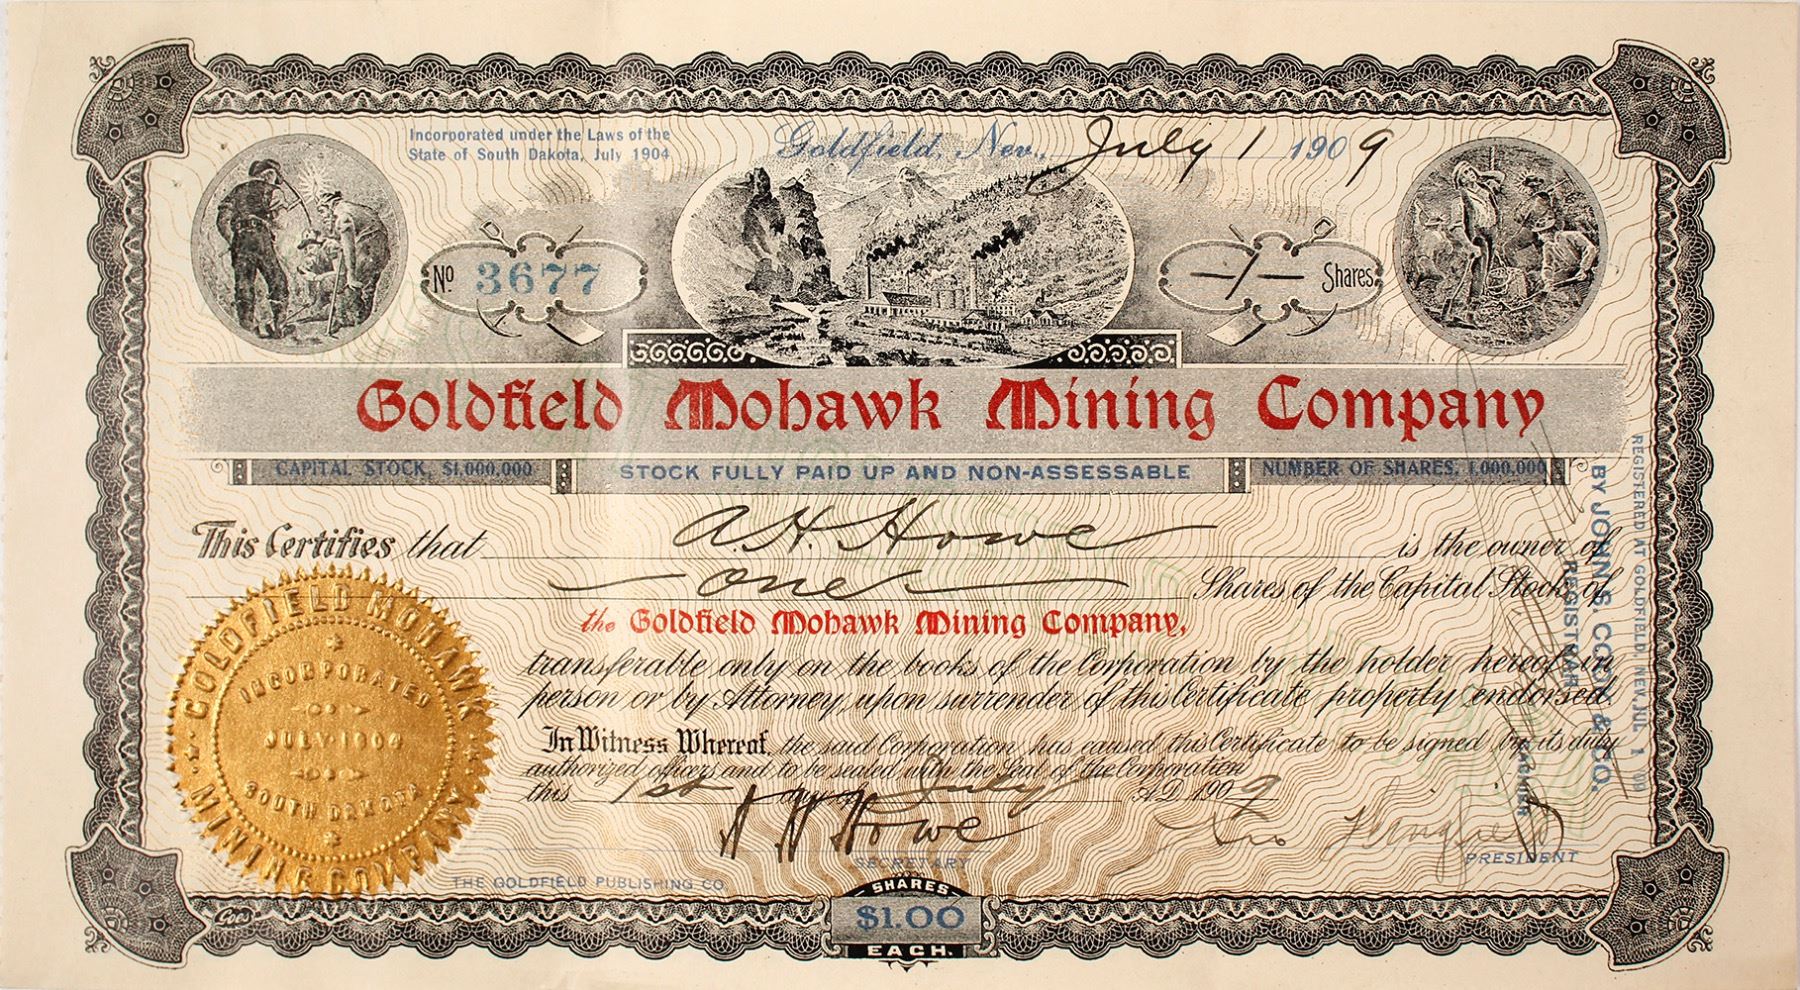 Incorporated under the Laws of the
State of South Dakota, July 1904
Goldfield, Nev., July 1 1909
No 3677
-1- Shares
Goldfield Mohawk Mining Company
CAPITAL STOCK, $1,000,000
STOCK FULLY PAID UP AND NON-ASSESSABLE
NUMBER OF SHARES, 1,000,000
This Certifies that A. H. Howe is the owner of
One Shares of the Capital Stock of
the Goldfield Mohawk Mining Company,
transferable only on the books of the Corporation by the holder hereof in
person or by Attorney, upon surrender of this Certificate properly endorsed.
In Witness Whereof, the said Corporation has caused this Certificate to be signed by its duly
authorized officers and to be sealed with the Seal of the Corporation
this 1st day of July A.D. 1909
A H Howe
SECRETARY
Geo Wingfield
PRESIDENT
THE GOLDFIELD PUBLISHING CO.
Goes
SHARES
$1.00
EACH.
GOLDFIELD MOHAWK
MINING COMPANY
INCORPORATED
JULY 1904
SOUTH DAKOTA
REGISTERED AT GOLDFIELD, NEV. JUL 1 09
BY JOHN S. COOK & CO.
REGISTRAR